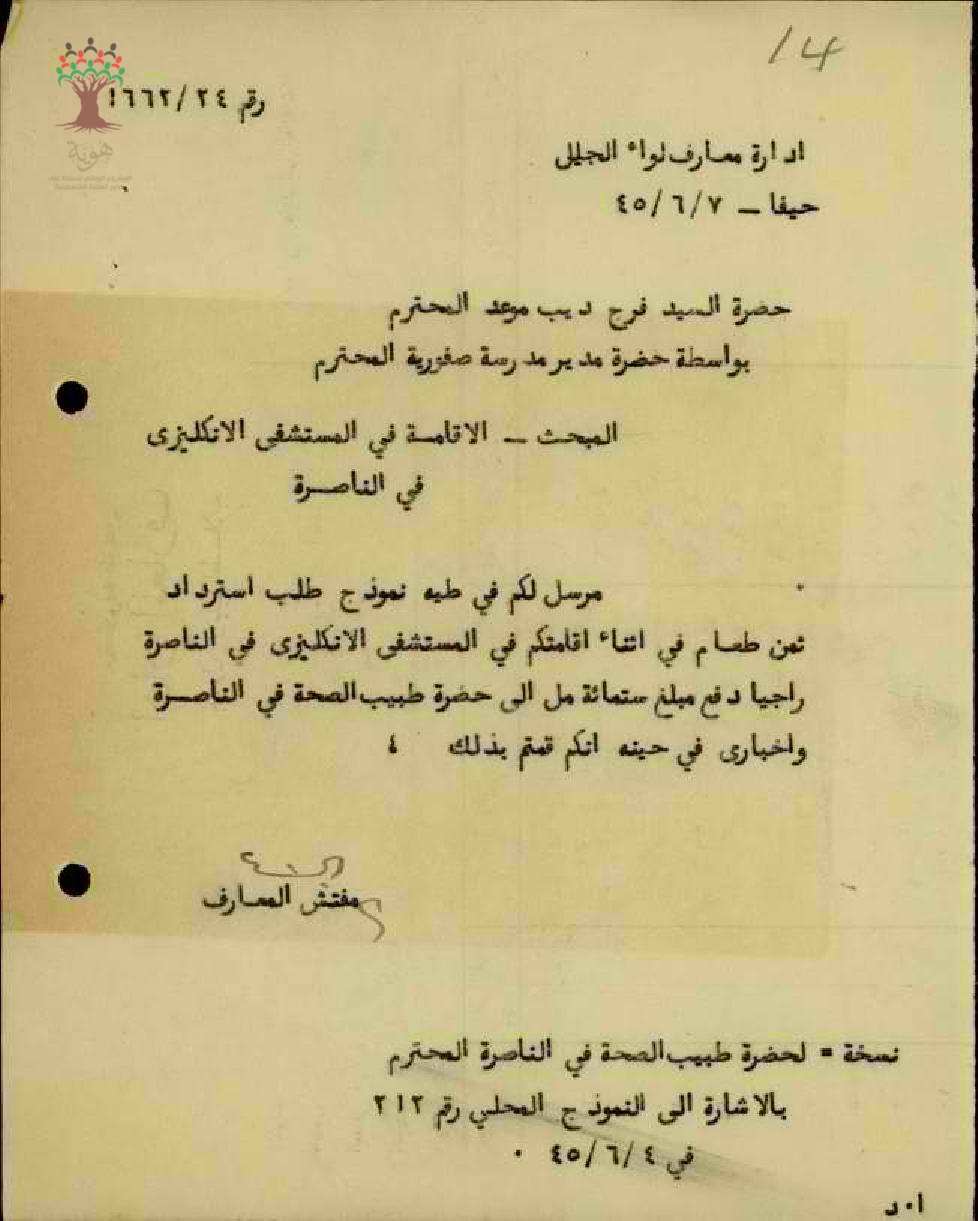 14
رقم ١٦٦٢/٢٤
هوية
ادارة معارف لواء الجليل
حيفا ــ ٤٥/٦/٧
حضرة السيد فرج ديب موعد المحترم
بواسطة حضرة مدير مدرسة صفورية المحترم
المبحث ــ الاقامة في المستشفى الانكليزى
في الناصرة
مرسل لكم في طيه نموذج طلب استرداد
ثمن طعام في اثناء اقامتكم في المستشفى الانكليزى في الناصرة
راجيا دفع مبلغ ستمائة مل الى حضرة طبيب الصحة في الناصرة
واخبارى في حينه انكم قمتم بذلك ٤
مفتش المعارف
نسخة = لحضرة طبيب الصحة في الناصرة المحترم
بالاشارة الى النموذج المحلي رقم ٢١٢
في ٤٥/٦/٤ ٠
ا٠د